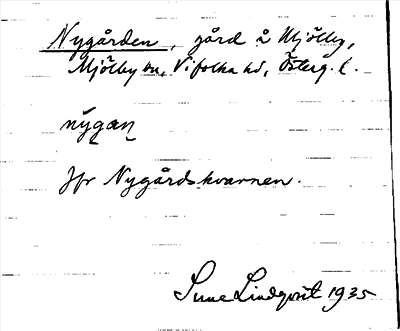 Nygården, gård å Mjölby,
Mjölby sn, Vifolka hd, Österg. l.
nỳgan
Jfr Nygårdskvarnen.
Sune Lindqvist 1935